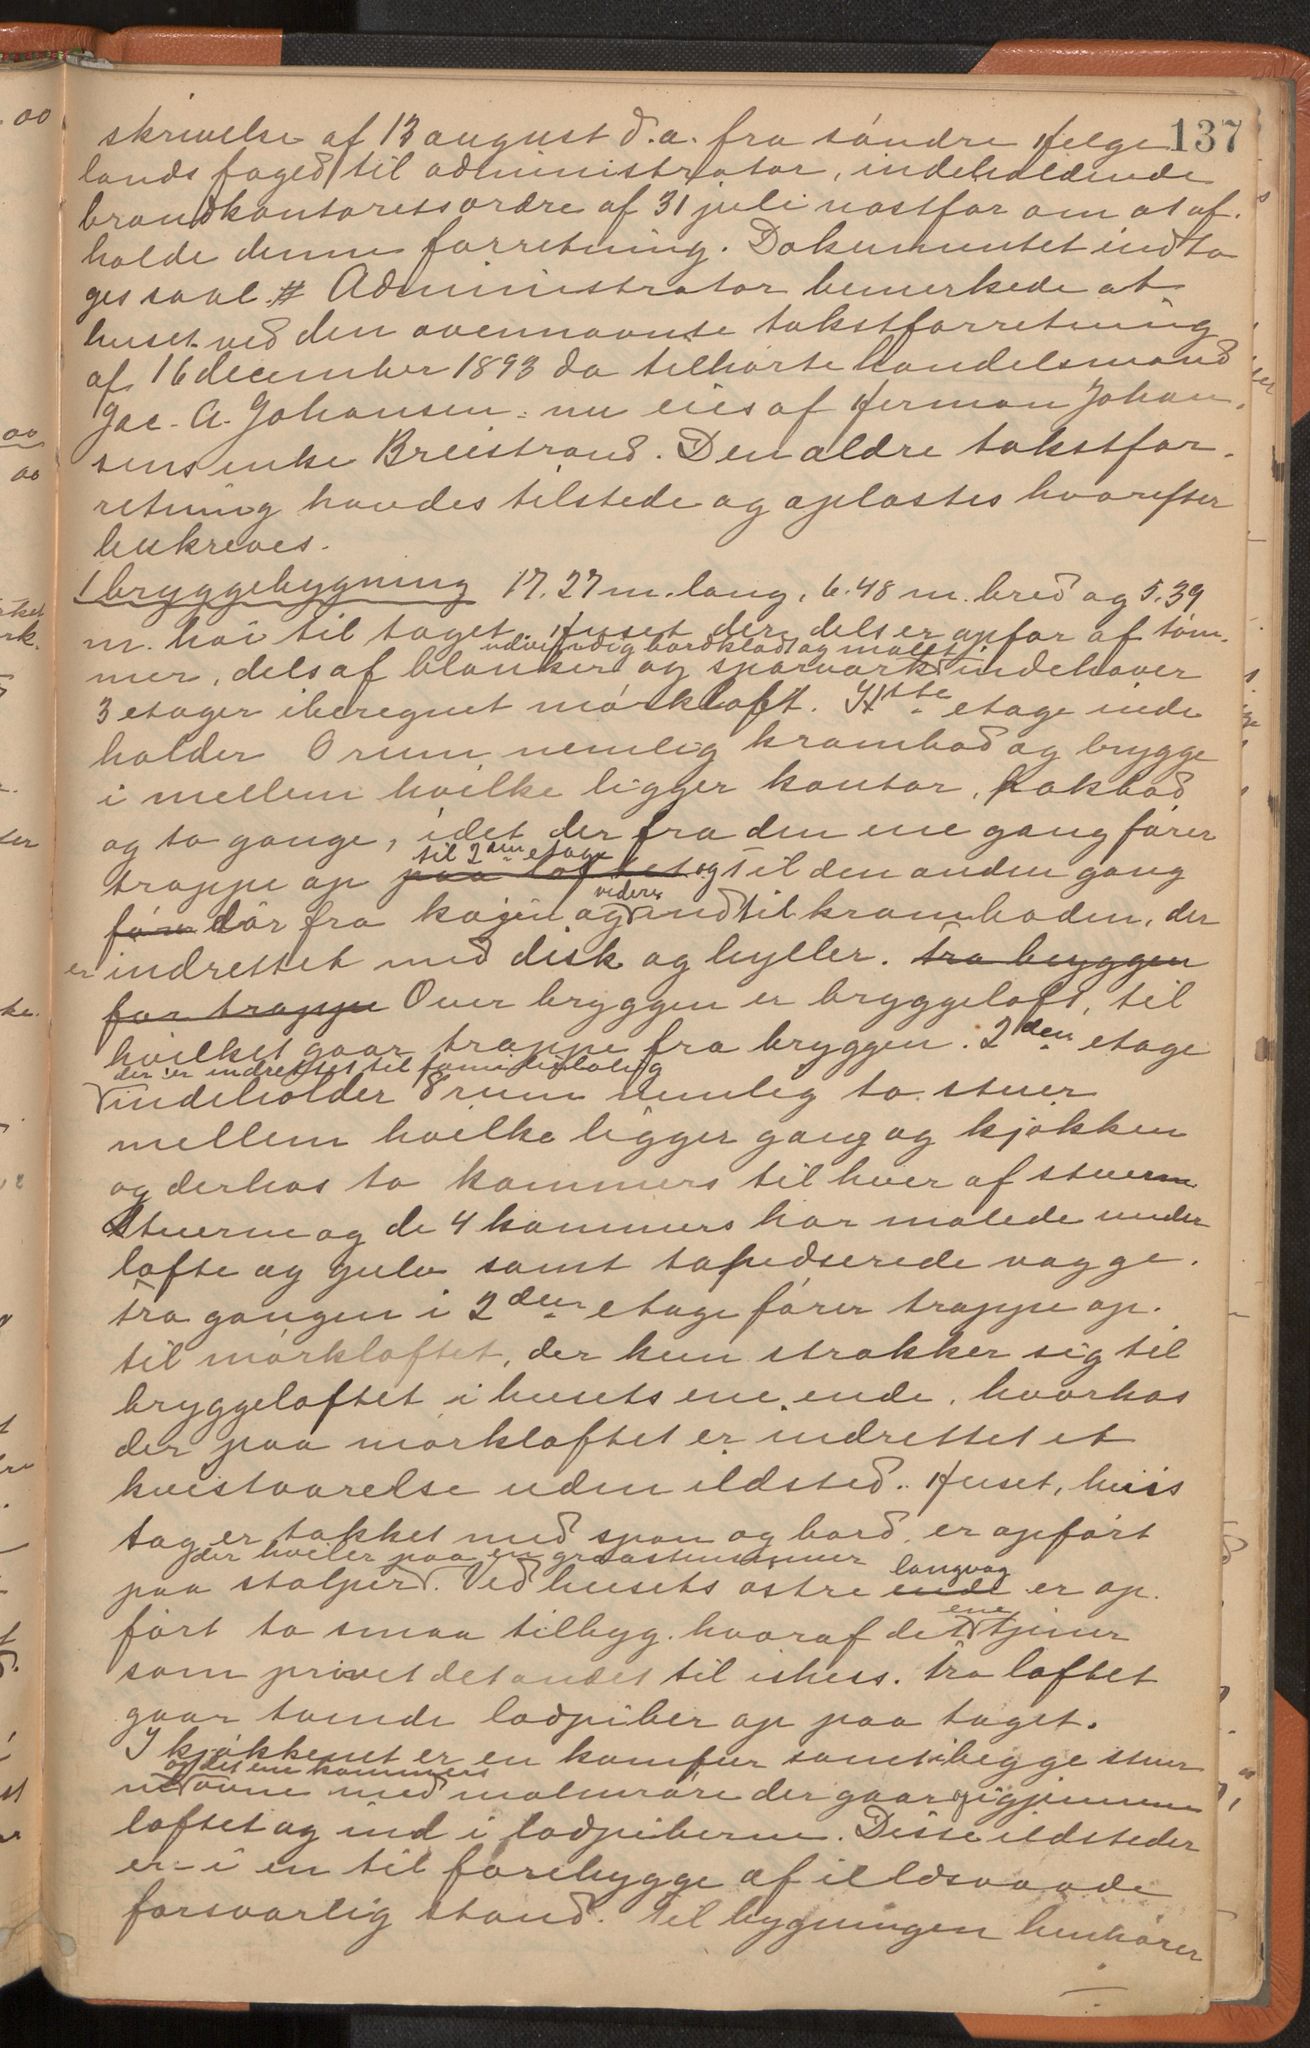 137
skrivelse af 13 august d.a. fra søndre Helge
lands foged til administrator, indeholdende
brandkontorets ordre af 31 juli næstfør om at af-
holde denne forretning. Dokumentet indto
ges saal. # Administrator bemerkede at
huset ved den ovennævnte takstforretning
af 16 december 1893 da tilhørte handelsmand
Jac. A. Johansen nu eies af Herman Johan-
sens enke Breistrand. Den ældre takstfor-
retning havdes tilstede og oplæstes hvorefter
beskreves.
1 bryggebygning 17.27 m. lang, 6.48 m. bred og 5.39
m. høi til taget. Huset der dels er opfør af tøm-
udvendig bordklædt og malet
mer, dels af planker og sparværk indehaver
3 etager iberegnet mørkloft. 1ste etage inde
holder 5 rum nemlig krambod og brygge
i mellem hvilke ligger kontor, pakbod
og to gange, idet der fra den ene gang fører
til 2den etage
trappe op paa loftet og til den anden gang
videre
føre dør fra kajen og ind til kramboden, der
er indrettet med disk og hyller. Fra bryggen
før trappe Over bryggen er bryggeloft, til
hvilket gaar trappe fra bryggen. 2den etage
der er indrettet til familiebolig
indeholder 8 rum nemlig to stuer
mellem hvilke ligger gang og kjøkken
og derhos to kammers til hver af stuerne
Stuerne og de 4 kammers har malede under
lofte og gulv samt tapedserede vægge.
Fra gangen i 2den etage fører trappe op
til mørkloftet, der kun strækker sig til
bryggeloftet i husets ene ende, hvorhos
der paa mørkloftet er indrettet et
kvistværelse uden ildsted. Huset, hvis
tag er tækket med spon og bord, er opført
der hviler paa en graastensmur
paa stolper. Ved husets østre ende langvæg er op-
ført to smaa tilbyg. hvoraf det ene tjener
som privet det andet til ishus. Fra loftet
gaar tvende lodpiber op paa taget.
I kjøkkenet er en komfur samt i begge stuer
og det ene kammers
ne ovne med malmrøre der gaar igjennem
loftet og ind i lodpiberne. Disse ildsteder
er i en til forebygge af ildsvaade
forsvarlig stand. Til bygningen henhører